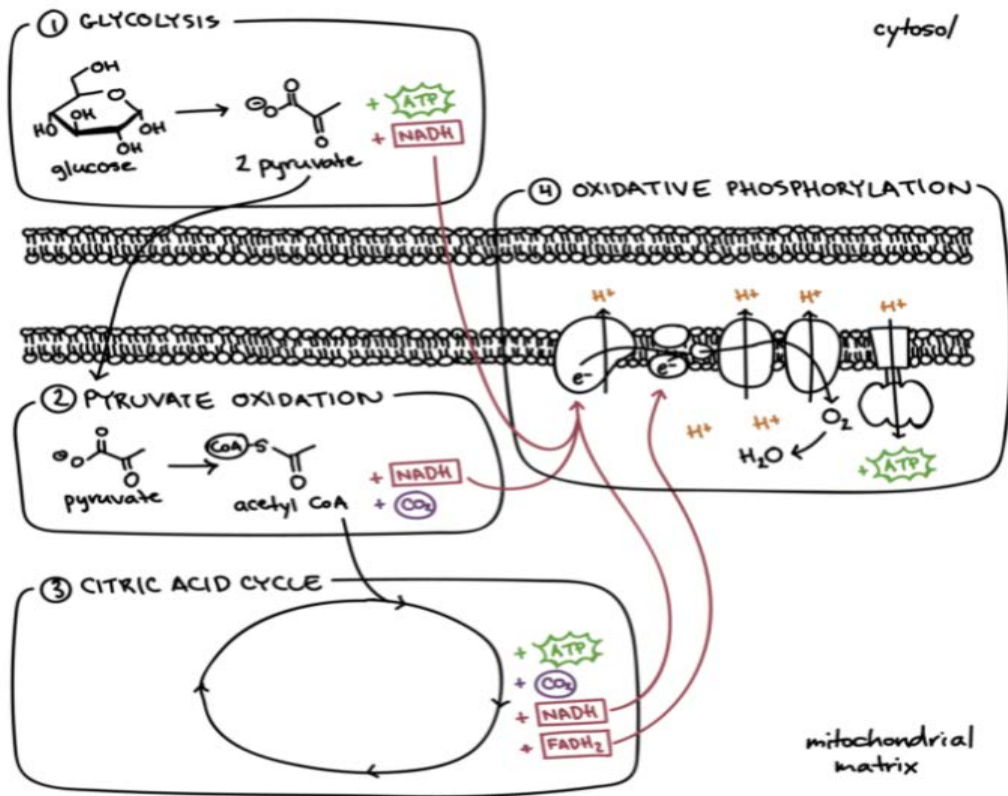 ① GLYCOLYSIS
cytosol
OH
O
OH
HO
OH
OH
glucose
⊖O
O
O
2 pyruvate
+ ATP
+ NADH
④ OXIDATIVE PHOSPHORYLATION
H+ H+ H+ H+
e- e-
H+ H+
O2
H2O
+ ATP
② PYRUVATE OXIDATION
⊖O
O
O
pyruvate
CoA-S
O
acetyl CoA
+ NADH
+ CO2
③ CITRIC ACID CYCLE
+ ATP
+ CO2
+ NADH
+ FADH2
mitochondrial
matrix